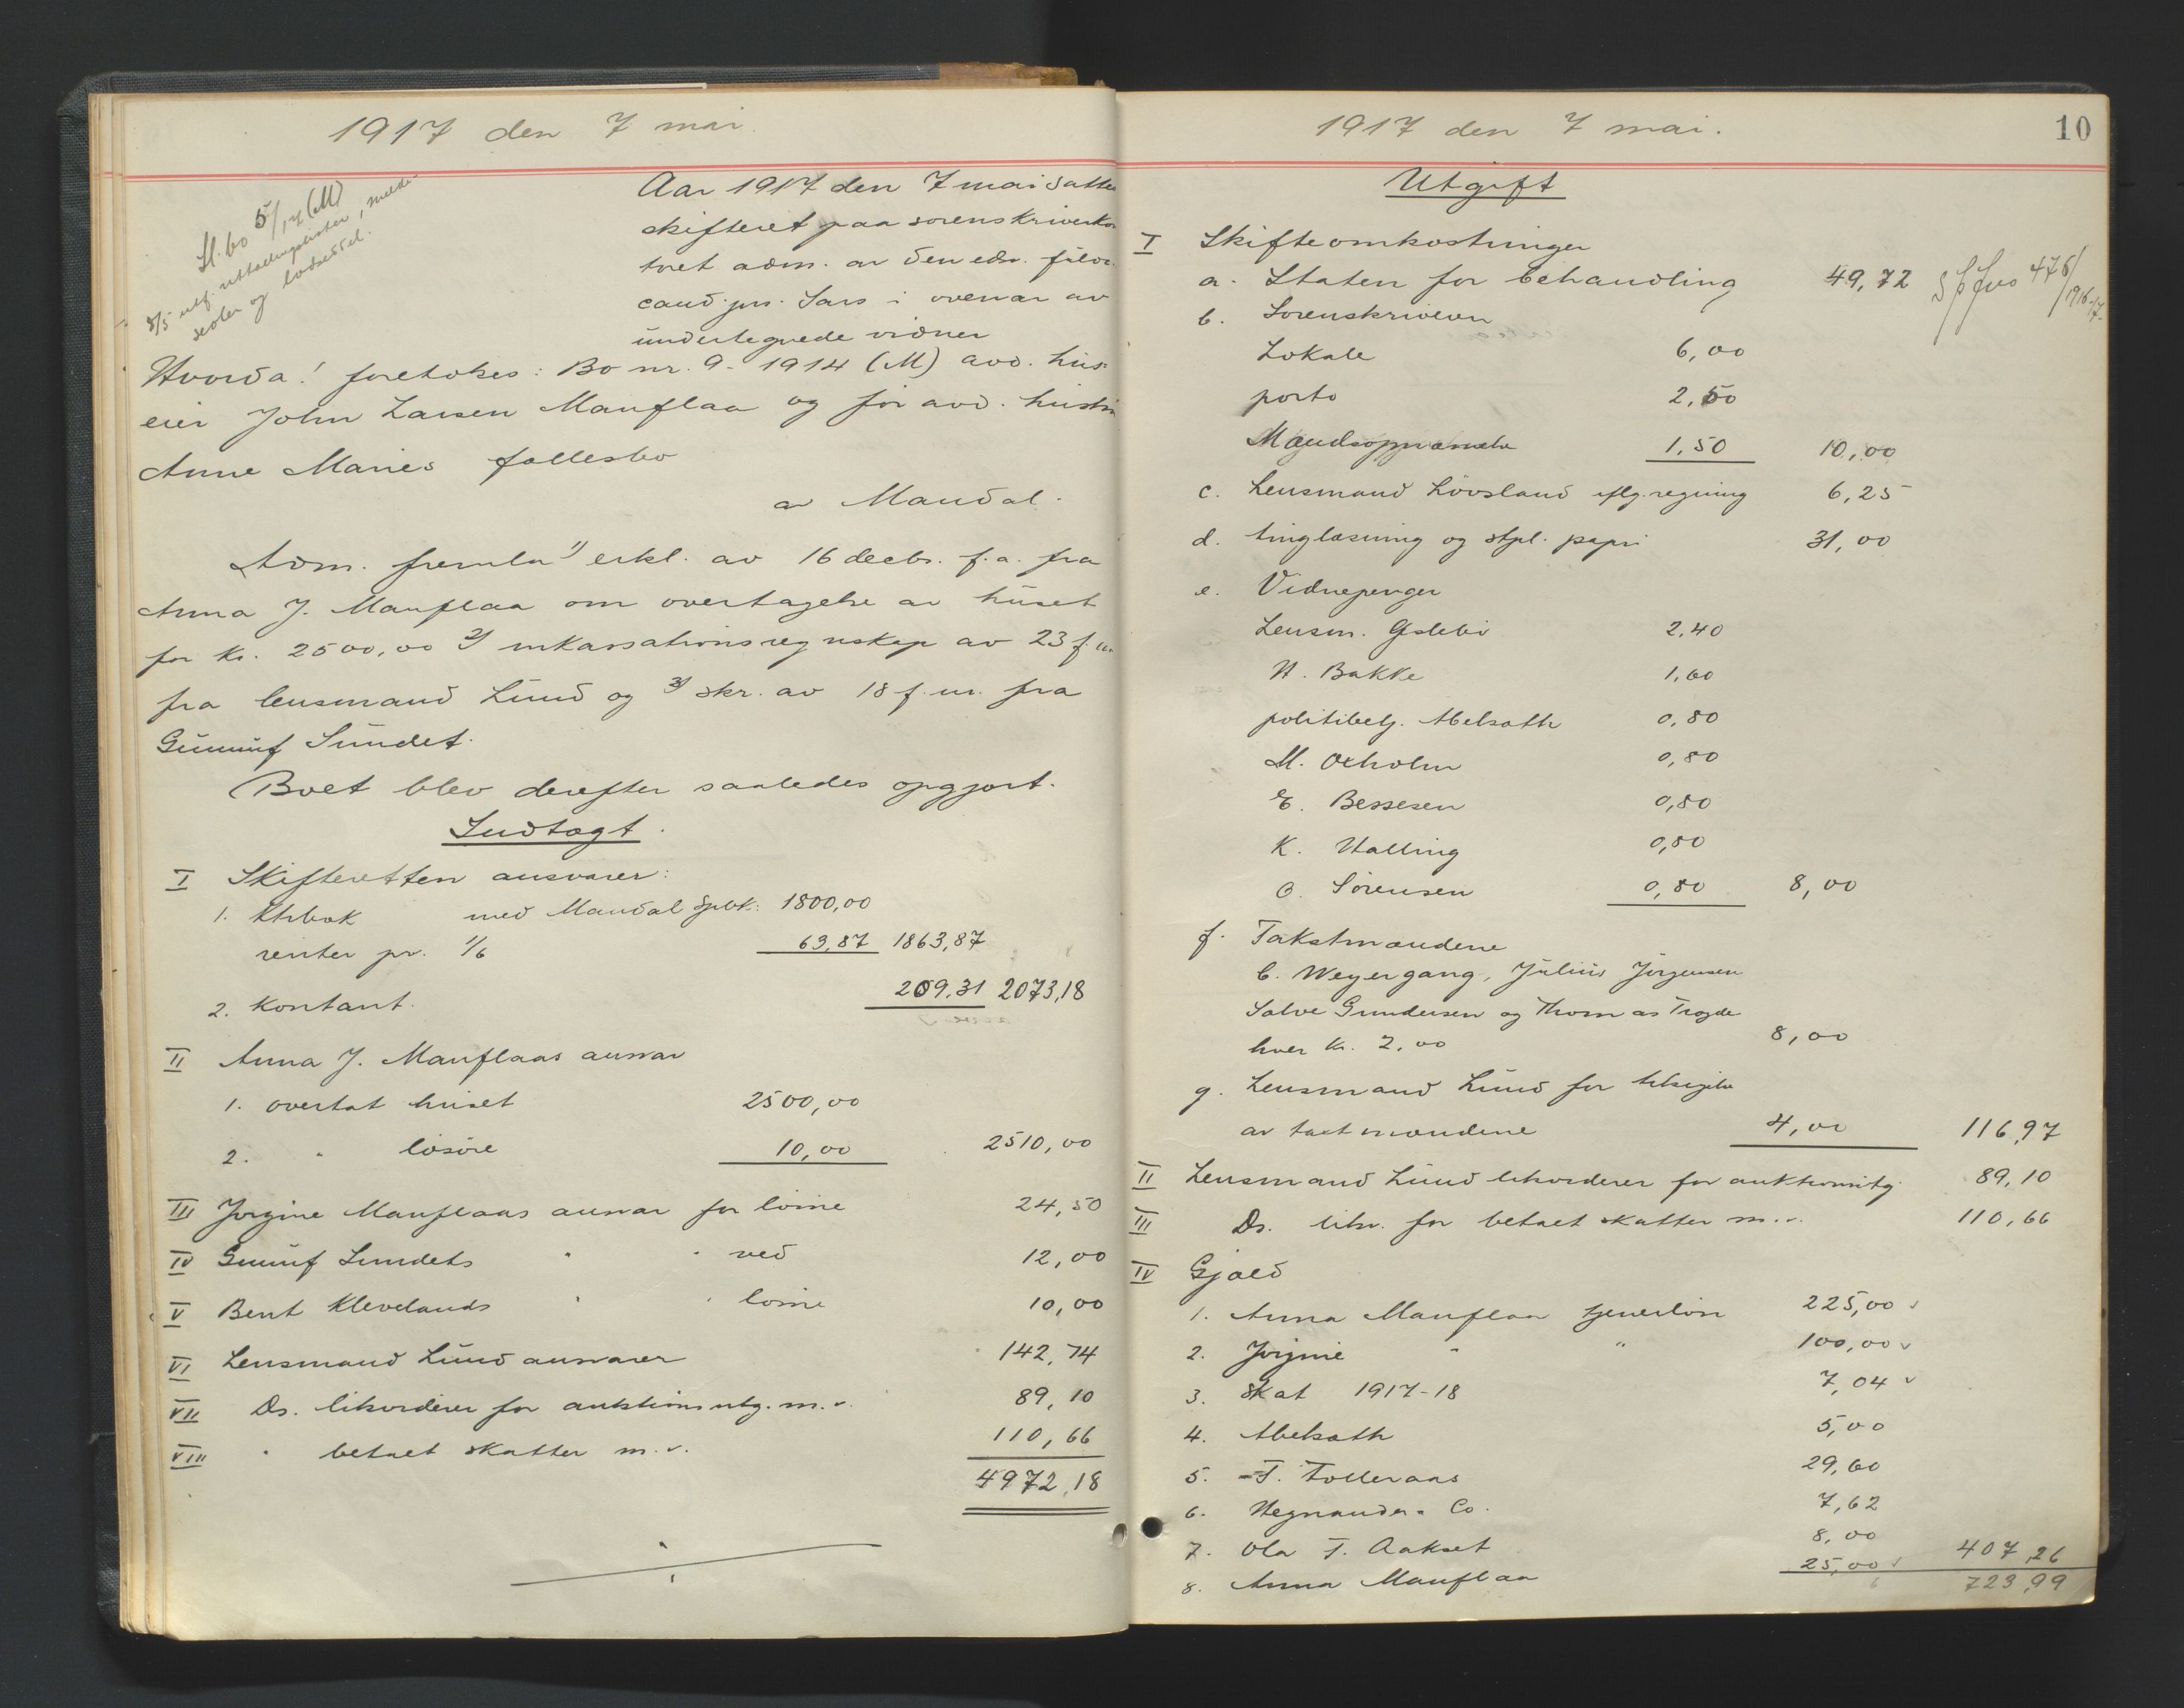 1917 den 7 mai.
Sl. bo 5/17 (M)
8/5 utf. utlodningslister, melde-
sedler og lodseddel.
Aar 1917 den 7 mai sattes
skifteret paa sorenskriverkon
toret adm. av den eds. fuldm.
cand. jur. Sars i overvær av
undertegnede vidner
Hvorda! foretokes: Bo nr. 9 - 1914 (M) avd. hus-
eier John Larsen Manflaa og før avd. hustru
Anne Maries fællesbo
av Mandal.
Adm. fremla 1) erkl. av 16 decbr. f.a. fra
Anna J. Manflaa om overtagelse av huset
for kr. 2500,00 2) inkassationsregnskap av 23 f.m.
fra lensmand Lund og 3) skr. av 18 f.m. fra
Gunnuf Sundet.
Boet blev derefter saaledes opgjort.
Indtægt.
I Skifteretten ansvarer:
1. Ktrbok med Mandal Spbk: 1800,00
renter pr. 1/6 63,87 1863,87
2. Kontant. 209,31 2073,18
II Anna J. Manflaas ansvar
1. overtat huset 2500,00
2. " løsøre 10,00 2510,00
III Jørgine Manflaas ansvar for losine 24,50
IV Gunnuf Sundets " " ved 12,00
V Bent Klevelands " " losine 10,00
VI Lensmand Lund ansvarer 142,74
VII Ds. likviderer for auktionsutg. m.v. 89,10
VIII " betalt skatter m.v. 110,66
4972,18
1917 den 7 mai.
10
Utgift
I Skifteomkostninger
a. Staten for behandling 49,72 476/1916-17
b. Sorenskriveren
Lokale 6,00
porto 2,50
Mændsopnævnelse 1,50 10,00
c. Lensmand Lövsland iflg. regning 6,25
d. tinglæsning og stpl. papir 31,00
e. Vidnepenger
Lensm. Gslebø 2,40
N. Bakke 1,60
politibetj. Abelsæth 0,80
M. Oxholm 0,80
E. Bessesen 0,80
K. Halling 0,80
O. Sørensen 0,80 8,00
f. Takstmændene
C. Weyergang, Julius Jørgensen
Salve Gundersen og Thomas Trygde
hver kr. 2,00 8,00
g. Lensmand Lund for tilsigelse
av taxtmændene 4,00 116,97
II Lensmand Lund likviderer for auktionsutg. 89,10
III Ds. likv. for betalt skatter m.v. 110,66
IV Gjæld
1. Anna Manflaa tjenerløn 225,00
2. Jørgine " " 100,00
3. Skat 1917-18 7,04
4. Abelsæth 5,00
5. T. Tolleraas 29,60
6. Hegnander & Co. 7,62
7. Ola T. Aakset 8,00
8. Anna Manflaa 25,00 407,26
723,99